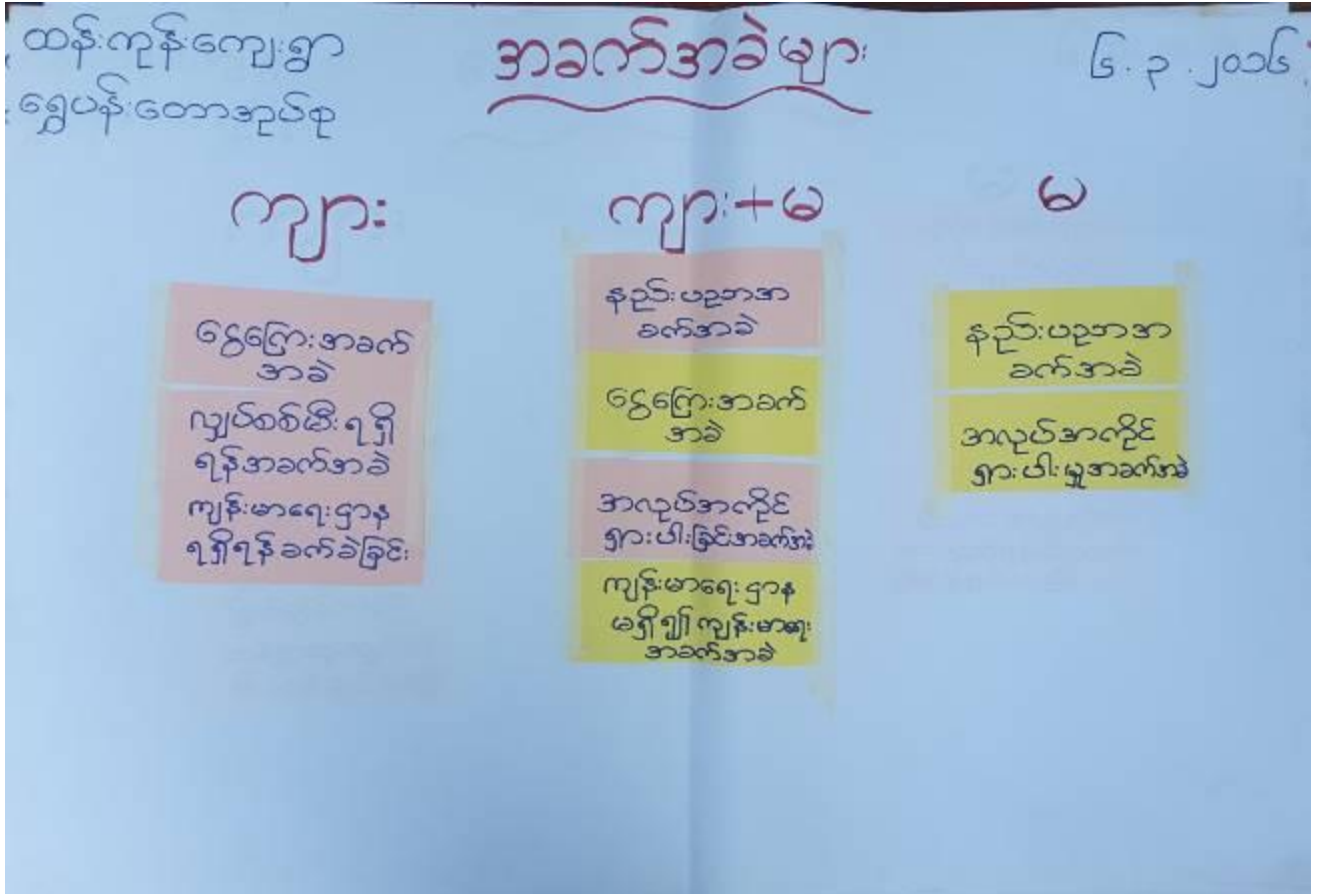 ထန်းကုန်းကျေးရွာ
ရွှေပန်းတောအုပ်စု
အခက်အခဲများ
၆.၃.၂၀၁၆
ကျား
ငွေကြေးအခက်
အခဲ
လျှပ်စစ်မီးရရှိ
ရန်အခက်အခဲ
ကျန်းမာရေးဌာန
ရရှိရန်ခက်ခဲခြင်း
ကျား+မ
နည်းပညာအ
ခက်အခဲ
ငွေကြေးအခက်
အခဲ
အလုပ်အကိုင်
ရှားပါးခြင်းအခက်အခဲ
ကျန်းမာရေးဌာန
မရှိ၍ကျန်းမာရေး
အခက်အခဲ
မ
နည်းပညာအ
ခက်အခဲ
အလုပ်အကိုင်
ရှားပါးမှုအခက်အခဲ